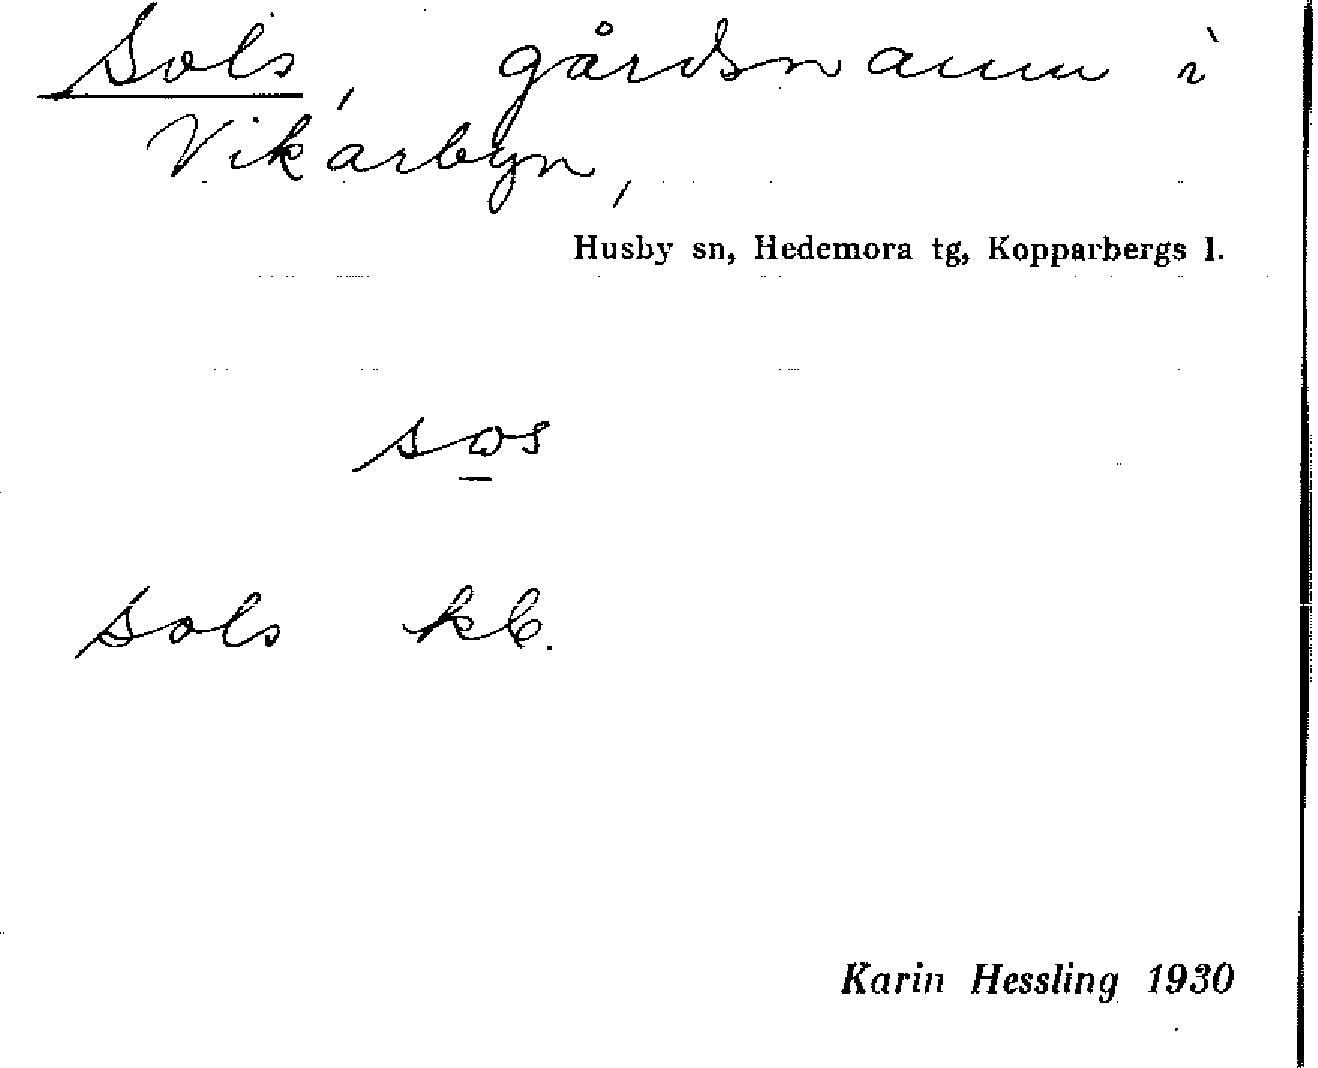 Sols, gårdsnamn i
Vikarbyn,
Husby sn, Hedemora tg, Kopparbergs l.
sωs
Sols kb.
Karin Hessling 1930